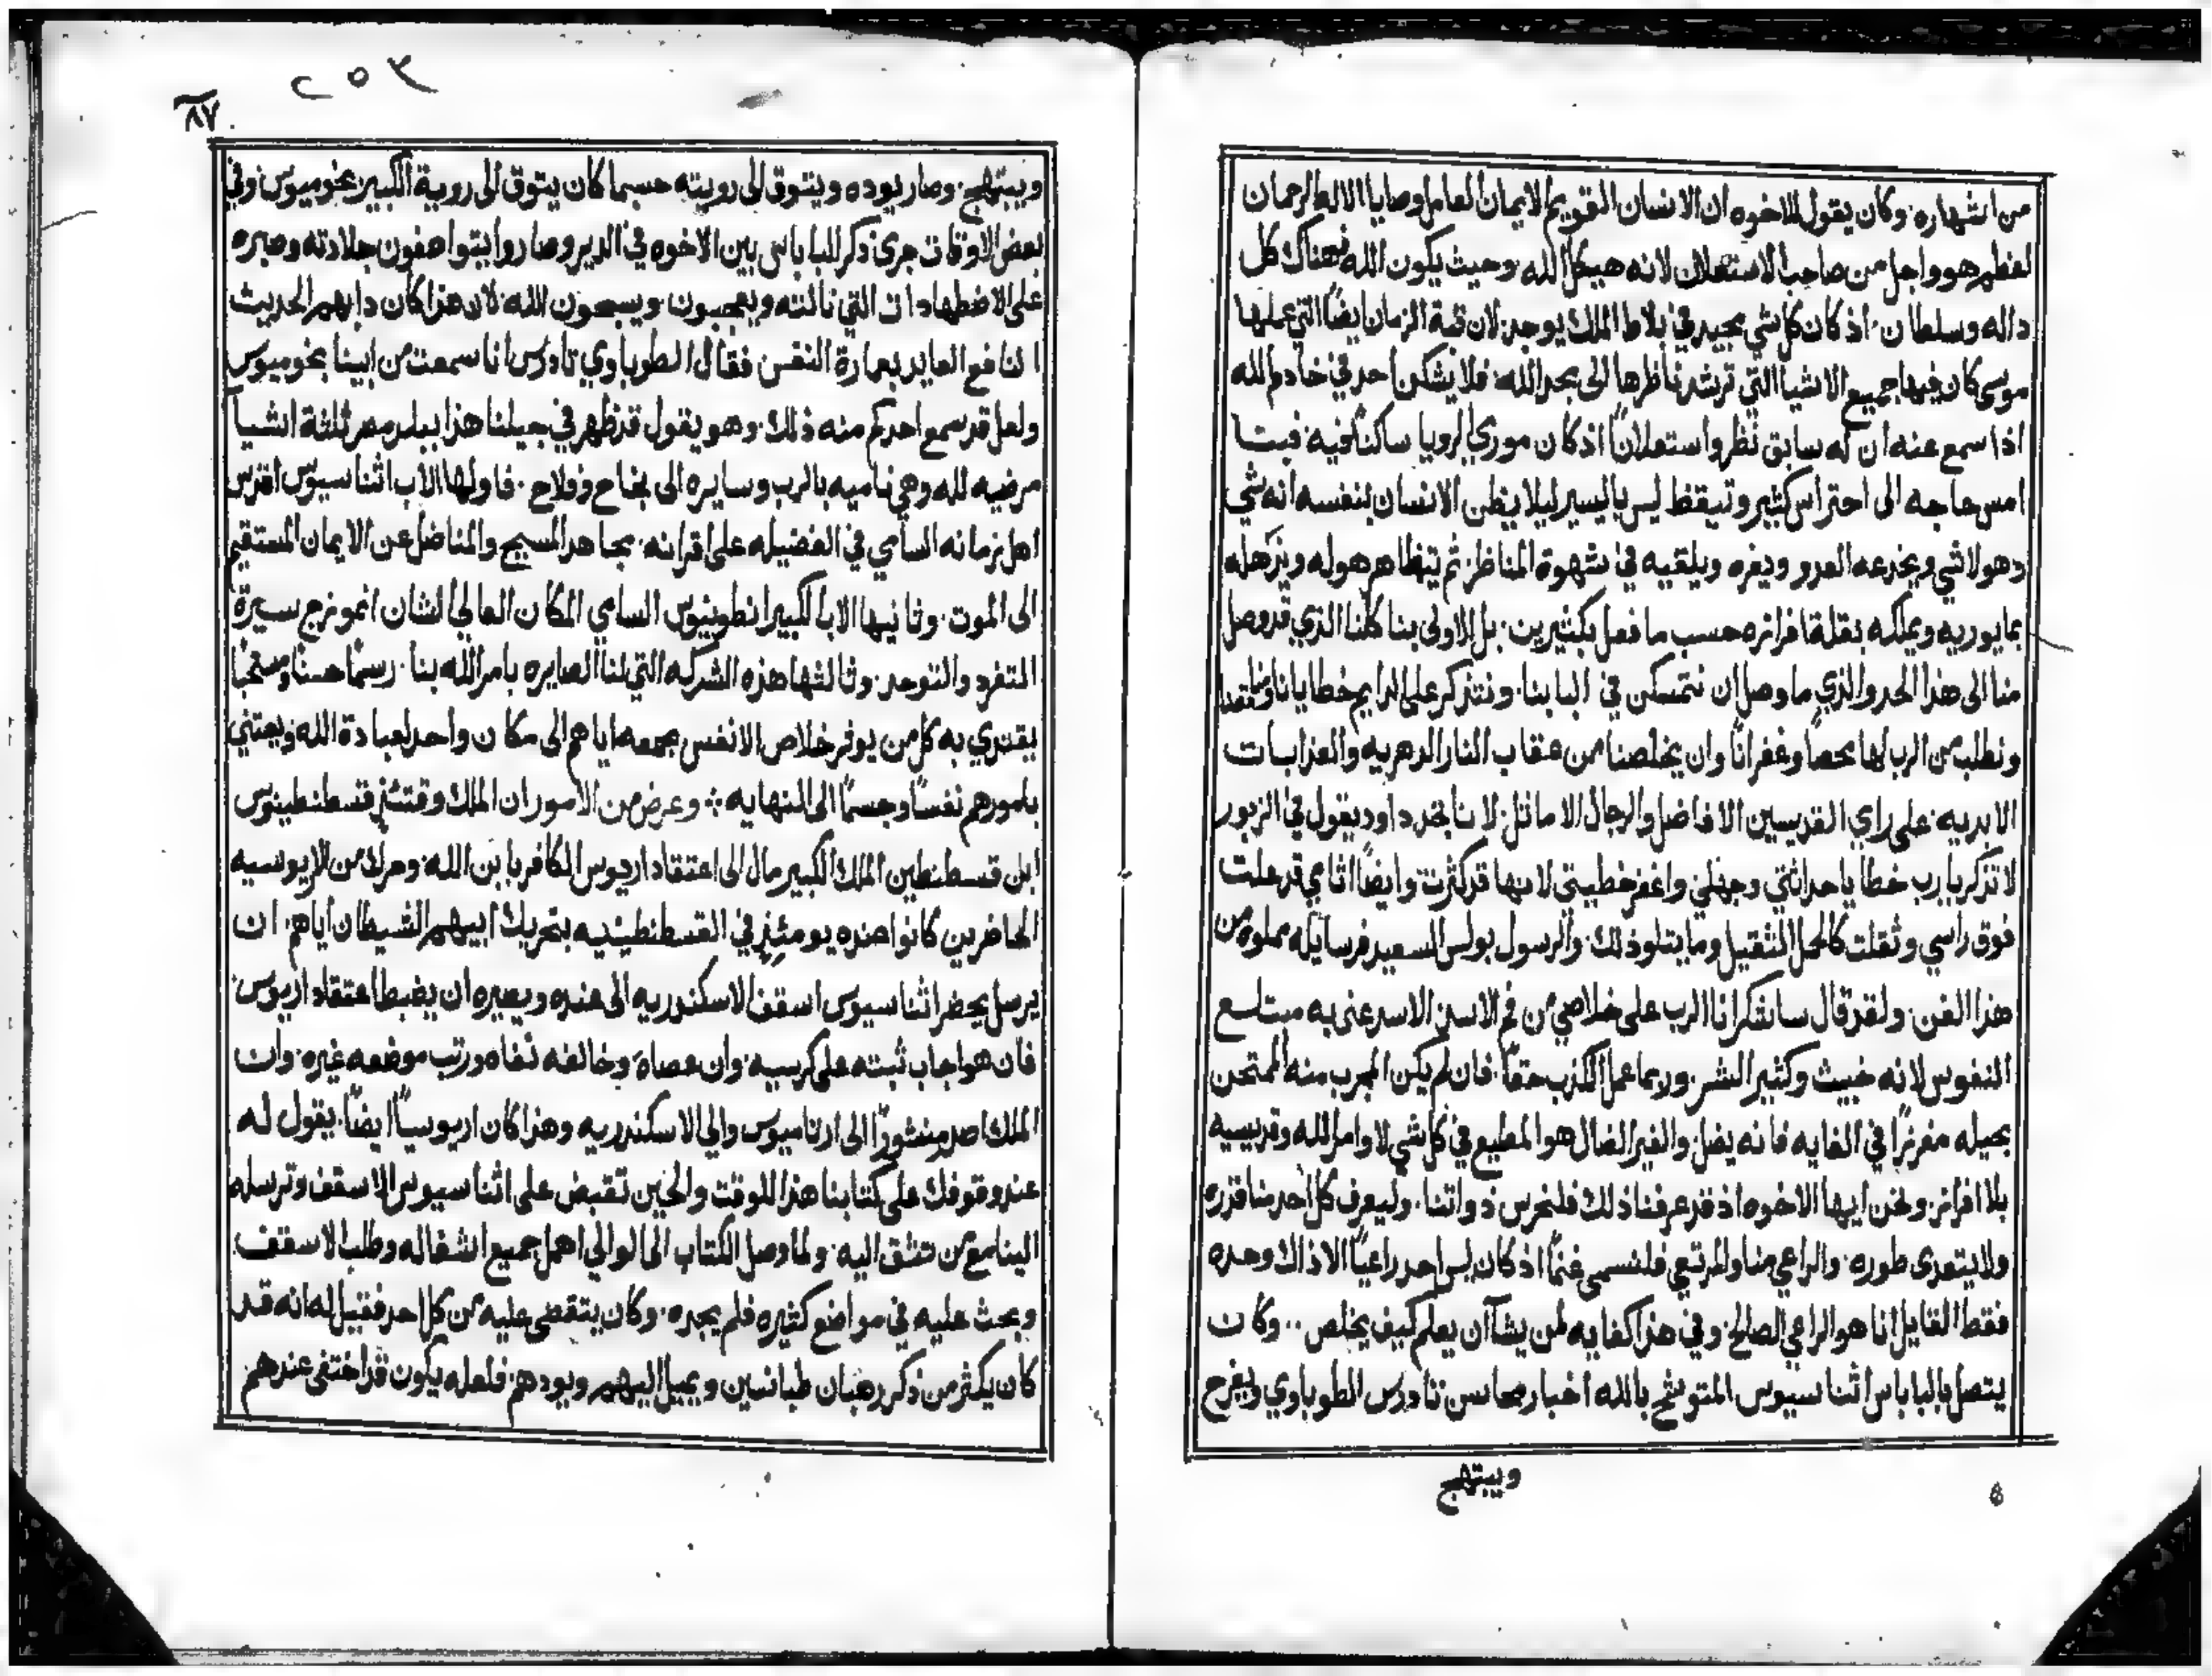 من اشهاره. وكان يقول للاخوه ان الانسان القويم الايمان العامل وصايا الاله الرحمان
لعظم هو واجل من صاحب الاستعلان لانه هيكل الله. وحيث يكون الله فهناك كل
داله وسلطان. اذ كان كل شي مجيد في بلاط الملك يوجد. لان قبة الزمان ايضًا التي عملها
موسى كان فيها جميع الاشيا التي ترشد ناظرها الى مجد الله. فلا يشكن احد في خادم الله
اذا سمع عنه ان له سابق نظر واستعلانًا اذ كان موري الرويا ساكنًا فيه. فبتا
امس حاجه الى احتراس كثير وتيقظ ليس باليسير ليلا يظن الانسان بنفسه انه شي
وهو لا شي ويخدعه العدو ويغره ويلقيه في شهوة المناظر. ثم يتظاهر هو له ويذهله
بما يوريه ويملكه بقلة افرازه حسب ما فعل بكثيرين. بل الاولى بنا كلنا الذي قد وصل
منا الى هذا الحد والذي ما وصل ان نتمسكن في البابنا. ونتذكر على الدايم خطايانا
ونطلب من الرب لها محصا وغفرانًا وان يخلصنا من عقاب النار الدهريه والعذابات
الابديه. على راي القديسين الافاضل والرجال الاماثل. لانا نجد داود يقول في الزبور
لا تذكر يا رب خطايا حداثتي وجهلي واغفر خطيتي لانها قد كثرت وايضًا اثامي قد علت
فوق راسي وثقلت كالحمل الثقيل وما يتلو ذلك. والرسول بولس السعيد فرسايله مملوه من
هذا الفن. ولقد قال ساشكر انا الرب على خلاصي من فم الاسد. الاسد عنى به مبتلع
النفوس لانه خبيث وكثير الشر. وربما عمل الكذب حقًا. فان لم يكن المجرب منه الممتحن
بحيله مفرزًا في الغايه فانه يضل. والغير الضال هو المطيع في كل شي لاوامر الله وقديسيه
بلا افراز. ونحن ايها الاخوه اذ قد عرفنا ذلك فلنحرس ذواتنا. وليعرف كل احد منا قدره
ولا يتعدى طوره. والراعي منا والمرتعي فلنسمى غنمًا اذ كان ليس احد راعيًا الا ذاك وحده
فقط القايل انا هو الراعي الصالح. وفي هذا كفايه لمن يشآ ان يعلم كيف يخلص .. وكان
يتصل بالباباس اثناسيوس المتوشح بالله اخبار محاسن تادرس الطوباوي ويفرح
ويبتهج
٢٥٣
٨٧
ويبتهج. وصار يوده ويتوق الى رويته حسبما كان يتوق الى روية الكبير بخوميوس. وفي
بعض الاوقات جرى ذكر الباباس بين الاخوه في الدير وصاروا يتواصفون جلادته وصبره
على الاضطهادات التي نالته ويتعجبون ويسبحون الله. لان هذا كان دابهم الحديث
النافع العايد بعمارة النفس فقال الطوباوي تادرس انا سمعت من ابينا بخوميوس
ولعل قد سمع احدكم منه ذلك. وهو يقول قد ظهر في جيلنا هذا ببلد مصر ثلثة اشيا
مرضيه لله وهي ناميه بالرب وسايره الى نجاح وفلاح. فاولها الاب اثناسيوس اقدس
اهل زمانه السامي في الفضيله على اقرانه. مجاهد المسيح والمناضل عن الايمان المستقيم
الى الموت. وثانيها الاب الكبير انطونيوس السامي المكان العالي الشان انموذج سيرة
المتفرد والتوحد. وثالثها هذه الشركه التي لنا الصايره بامر الله بنا. رسمًا حسنًا ومستحبًا
يقتدي به كل من يوفر خلاص الانفس بجمعه اياهم الى مكان واحد لعبادة الله ويعتني
بامورهم نفسًا وجسمًا الى النهايه ∻ وعرض من الامور ان الملك وقتئذٍ قسطنطينوس
ابن قسطنطين الملك الكبير مال الى اعتقاد اريوس الكافر بابن الله. وحرك من الاريوسيه
الحاضرين كانوا عنده يومئذٍ في القسطنطينيه بتحريك ابيهم الشيطان اياهم. ان
يرسل يحضر اثناسيوس اسقف الاسكندريه الى عنده ويصيره ان يضبط اعتقاد اريوس.
فان هو اجاب ثبته على كرسيه. وان عصاه وخالفه نفاه ورتب موضعه غيره. وان
الملك اصدر منشورًا الى ارتاميوس والي الاسكندريه وهذا كان اريوسيًا ايضًا. يقول له
عند وقوفك على كتابنا هذا للوقت والحين تقبض على اثناسيوس الاسقف وترسله
الينا مع من تثق اليه. ولما وصل الكتاب الى الوالي اهمل جميع اشغاله وطلب الاسقف
وبحث عليه في مواضع كثيره فلم يجده. وكان يتقصى عليه من كل احد فقيل له انه قد
كان يكثر من ذكر رهبان طبانسين ويميل اليهم ويودهم. فلعله يكون قد اختفى عندهم